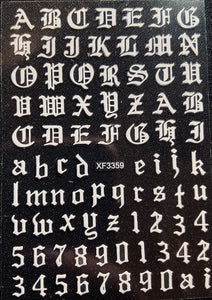 A B C D E F G
H I J K L M N
O P Q R S T U
V W X Y Z A B
C D E F G H I
a b c d XF3359 e i j k
l m n o p q r s t u
v w x y z 1 2 3 4
5 6 7 8 9 0 1 3 4 2
3 4 5 6 7 8 9 0 a i